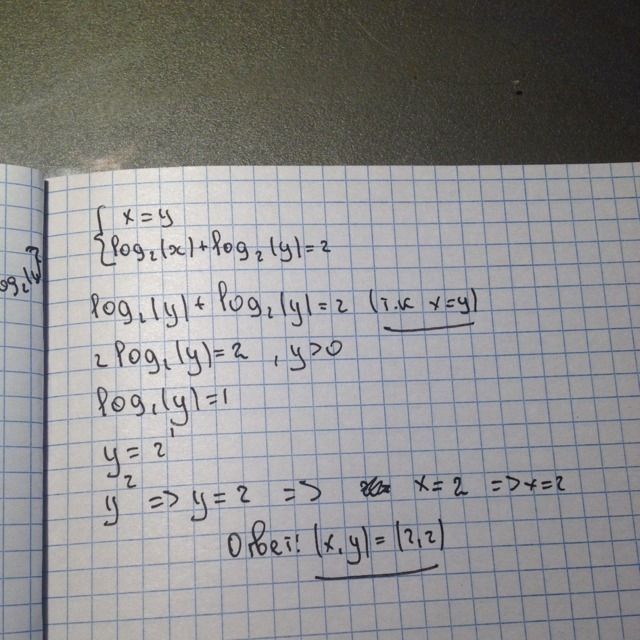 { x=y
{ log₂(x)+log₂(y)=2
log₂(y)+log₂(y)=2 (т.к x=y)
2log₂(y)=2 , y>0
log₂(y)=1
y=2¹
y² => y=2 => x=2 => x=2
Ответ: (x,y)=(2,2)